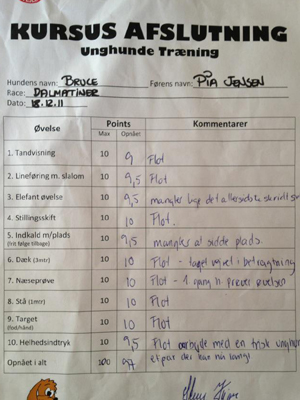 KURSUS AFSLUTNING
Unghunde Træning
Hundens navn: BRUCE Førens navn: PIA JENSEN
Race: DALMATINER
Dato: 18.12.11
Øvelse Points Kommentarer
Max Opnået
1. Tandvisning 10 9 Flot
2. Lineføring m. slalom 10 9,5 Flot
3. Elefant øvelse 10 9,5 mangler lige det allersidste skridt
4. Stillingsskift 10 10 Flot.
5. Indkald m/plads 10 9,5 mangler at sidde plads.
(frit følge tilbage)
6. Dæk (3mtr) 10 10 Flot - taget vejret i betragtning
7. Næseprøve 10 10 Flot - 1 gang I prøver øvelsen
8. Stå (1mtr) 10 10 Flot
9. Target 10 10 Flot
(fod/hånd)
10. Helhedsindtryk 10 9,5 Flot arbejde med en frisk unghund
Opnået i alt 100 97 et par der kan nå langt